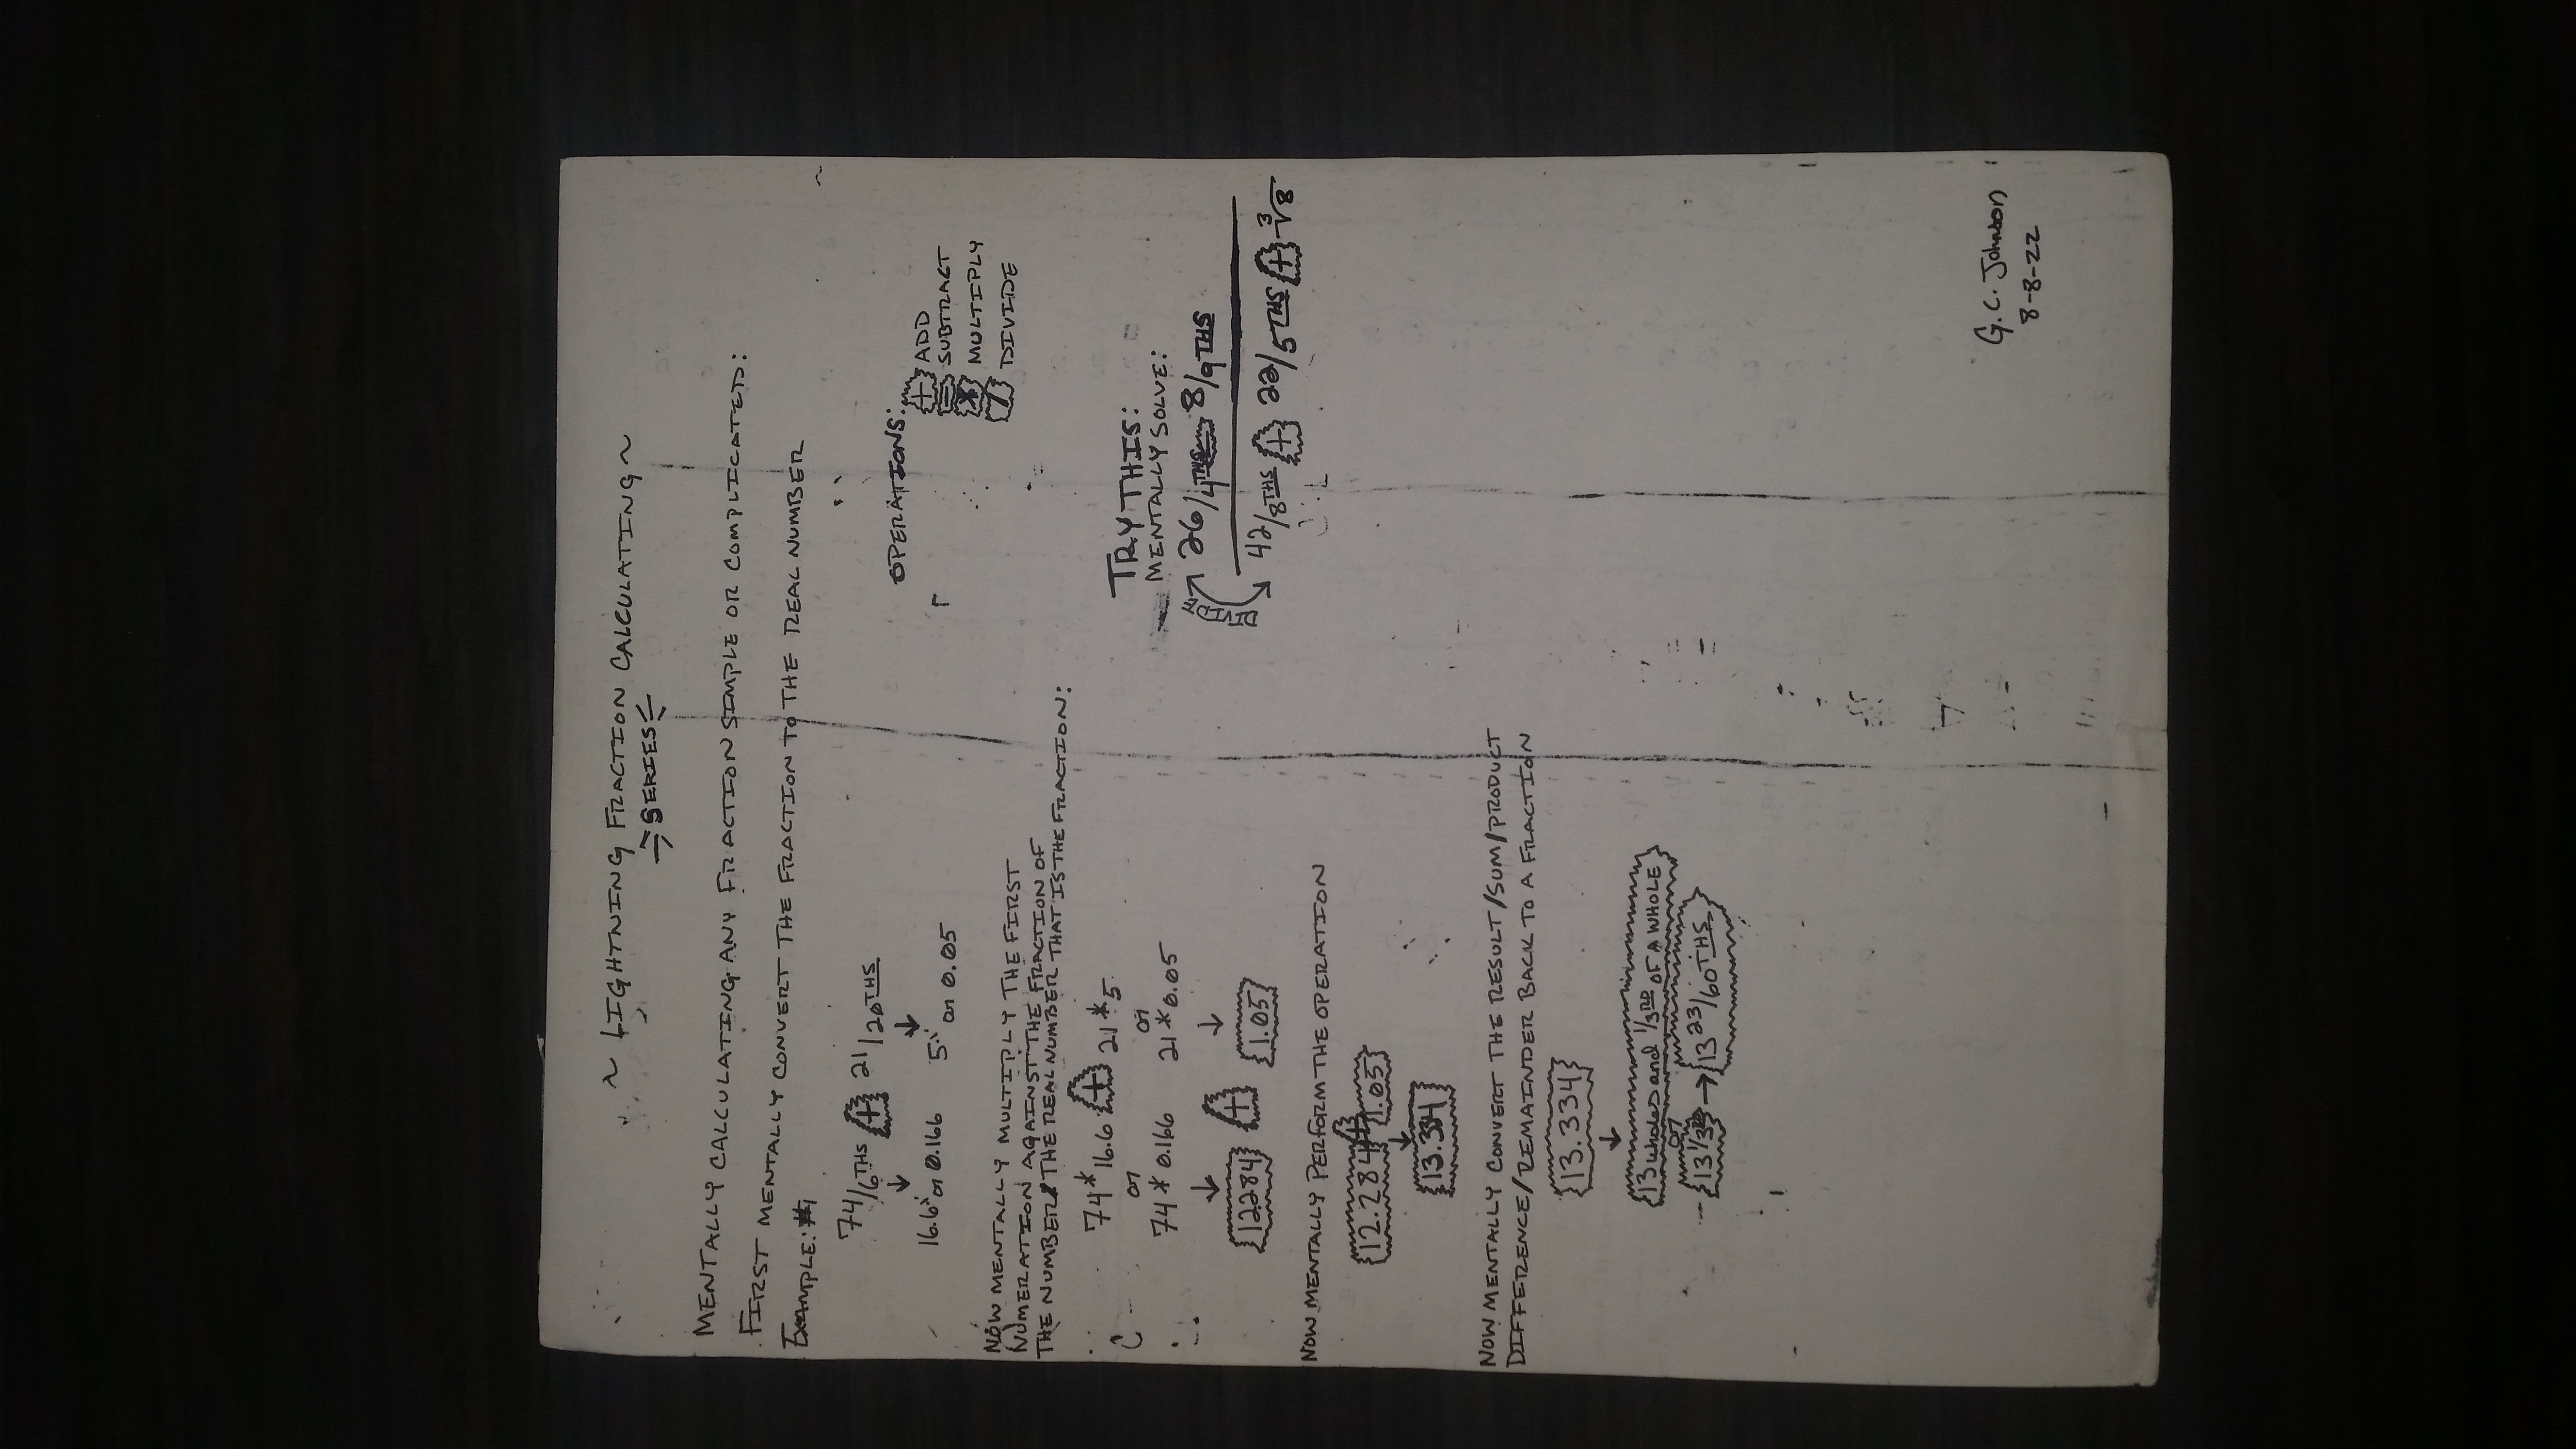 ~ LIGHTNING FRACTION CALCULATING ~
SERIES
MENTALLY CALCULATING ANY FRACTION SIMPLE OR COMPLICATED:
FIRST MENTALLY CONVERT THE FRACTION TO THE REAL NUMBER
EXAMPLE: #1
74/6THS + 21/20THS
↓ ↓
16.6 or 0.166 5 or 0.05
NOW MENTALLY MULTIPLY THE FIRST
NUMERATION AGAINST THE FRACTION OF
THE NUMBER/THE REAL NUMBER THAT IS THE FRACTION:
74*16.6 + 21*5
or or
74*0.166 21*0.05
↓ ↓
12.284 + 1.05
NOW MENTALLY PERFORM THE OPERATION
12.284 + 1.05
↓
13.334
NOW MENTALLY CONVERT THE RESULT/SUM/PRODUCT
DIFFERENCE/REMAINDER BACK TO A FRACTION
13.334
↓
13 wholes and 1/3RD OF A WHOLE
or
13 1/3RD → 13 23/60THS
OPERATIONS:
+ ADD
= SUBTRACT
* MULTIPLY
/ DIVIDE
TRY THIS:
MENTALLY SOLVE:
DIVIDE
26/4THS - 8/9THS
42/8THS + 22/5THS + ³√8
G.C. Johnson
8-8-22